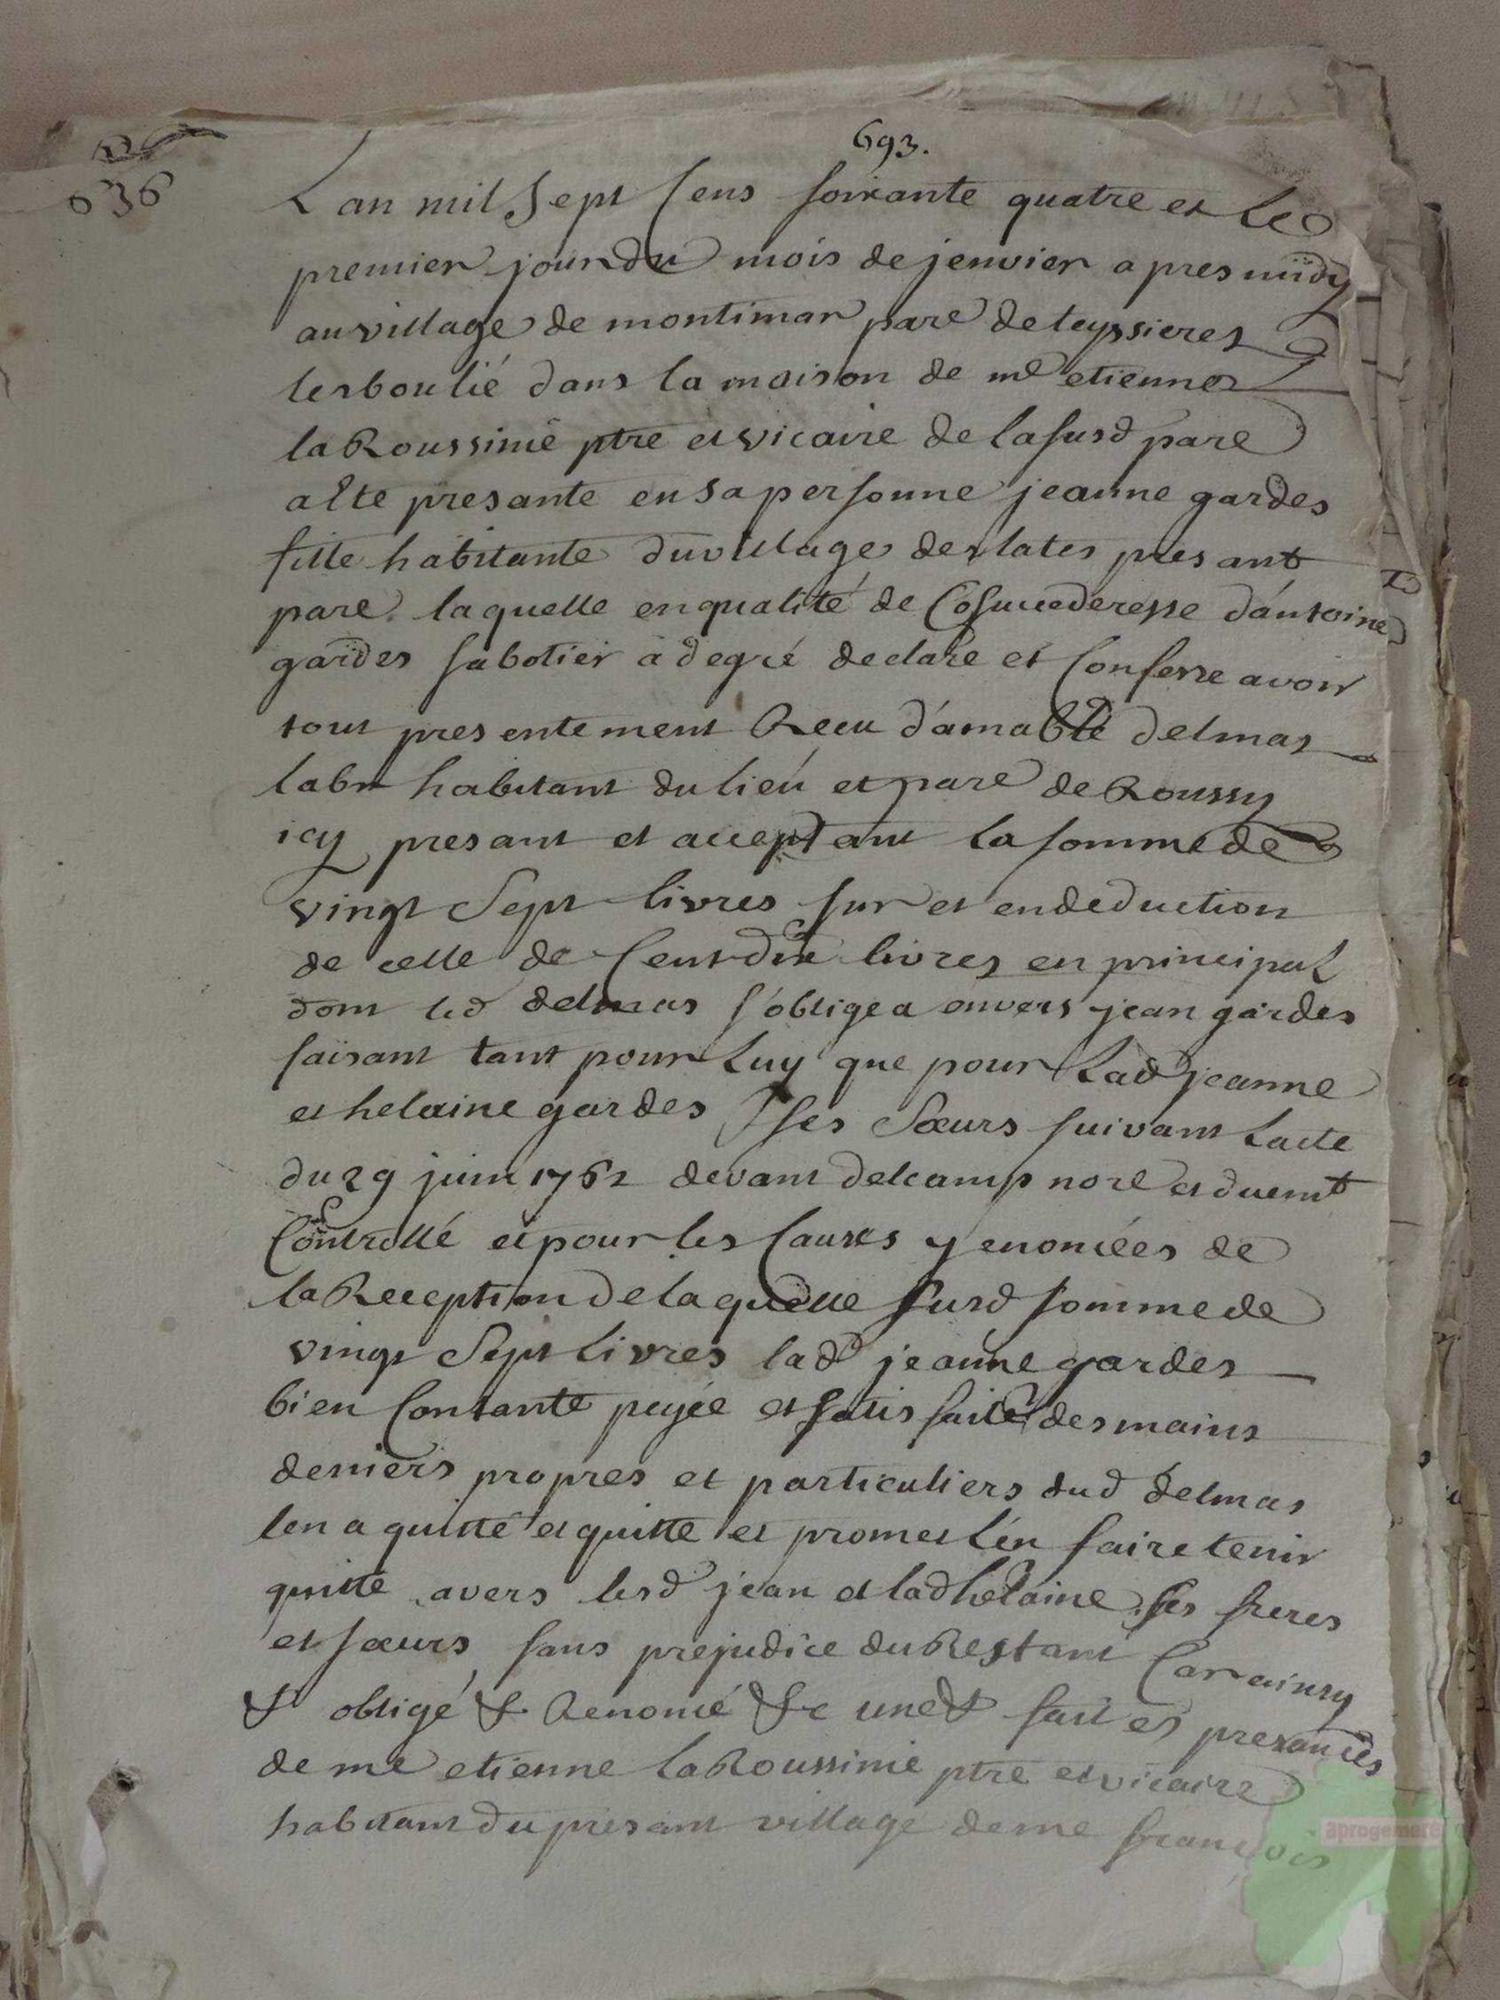 693.
636
Lan mil sept cens soixante quatre et le
premier jour du mois de jenvier apres midy
au village de montimar pare de teyssieres
lesboulié dans la maison de me etienne
laRoussinie ptre et vicaire de lasusd pare
a été presante en sa personne jeanne gardes
fille habitante du village des lates presant
pare laquelle en qualité de Cosuccederesse d'antoine
gardes sabotier a degré declaré et Confesse avoir
tout presentement Recu d'amable delmas
labr habitant du lieu et pare de Roussy
icy presant et acceptant la somme de
vingt Sept livres sur et en deduction
de celle de Cent dix livres en principal
dont led delmas s'obligea envers jean gardes
faisant tant pour Luy que pour Lad jeanne
et helaine gardes ses Sœurs suivant Lacte
du 29 juin 1762 devant delcamp nore et duemt
Controllé et pour les Causes y enoncées de
la Reception de laquelle susd somme de
vingt Sept Livres lad jeanne gardes
bien Contante payée et satisfaite des mains
deniers propres et particuliers dud delmas
len a quitté et quitte et promet l'en faire tenir
quitte avers lesd jean et lad helaine ses freres
et sœurs sans prejudice du Restant Car ainsy
& obligé & Renoncé &c une& fait es presances
de me etienne laRoussinie ptre et vicaire
habitant du presant village de me francois
aprogemere